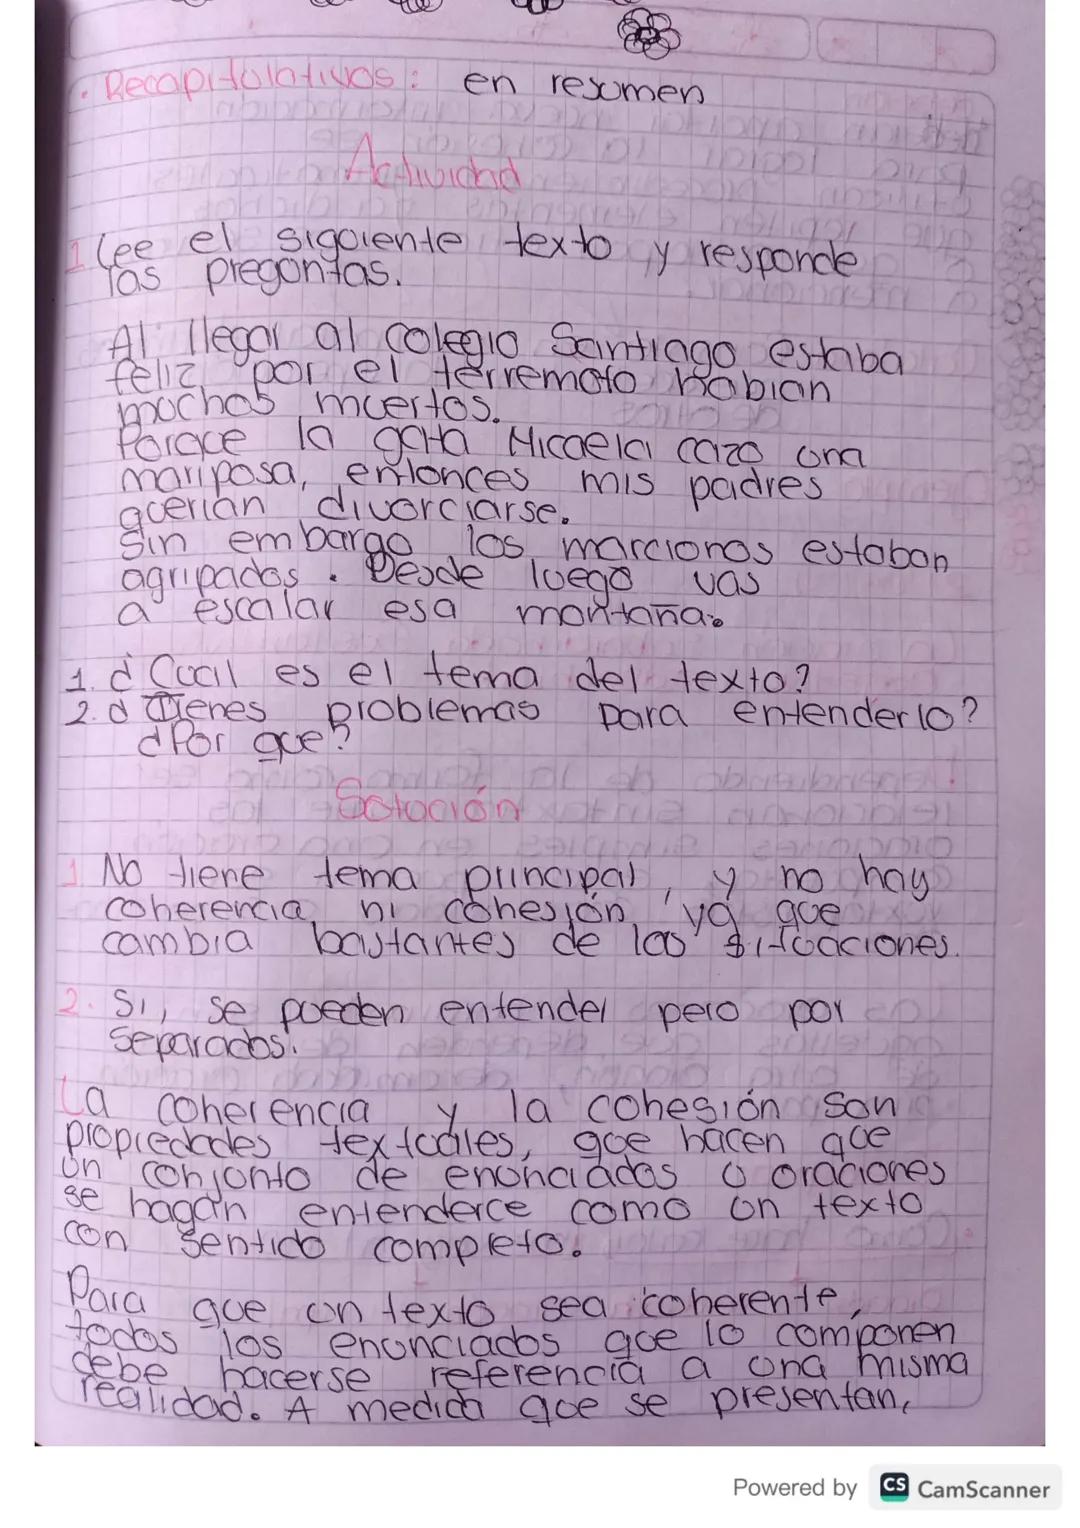 . Recapitulativos: en resumen
Actividad
1 Lee el siguiente texto y responde
las preguntas.
Al llegar al colegio Santiago estaba
feliz, por el terremoto habian
muchos muertos.
Porque la gata Micaela cazo una
mariposa, entonces mis padres
querian divorciarse.
Sin embargo los marcianos estaban
agripados. Desde luego vas
a escalar esa montaña.
1. ¿Cuál es el tema del texto?
2. ¿Tienes problemas para entenderlo?
¿Por que?
Solución
1 No tiene tema principal, y no hay
coherencia ni cohesión, ya que
cambia bastantes de las situaciones.
2. Si, se pueden entender pero por
separados.
La coherencia y la cohesión son
propiedades textuales, que hacen que
un conjunto de enunciados u oraciones
se hagan entenderce como un texto
con sentido completo.
Para que un texto sea coherente,
todos los enunciados que lo componen
debe hacerse referencia a una misma
realidad. A medida que se presentan,
Powered by CS CamScanner